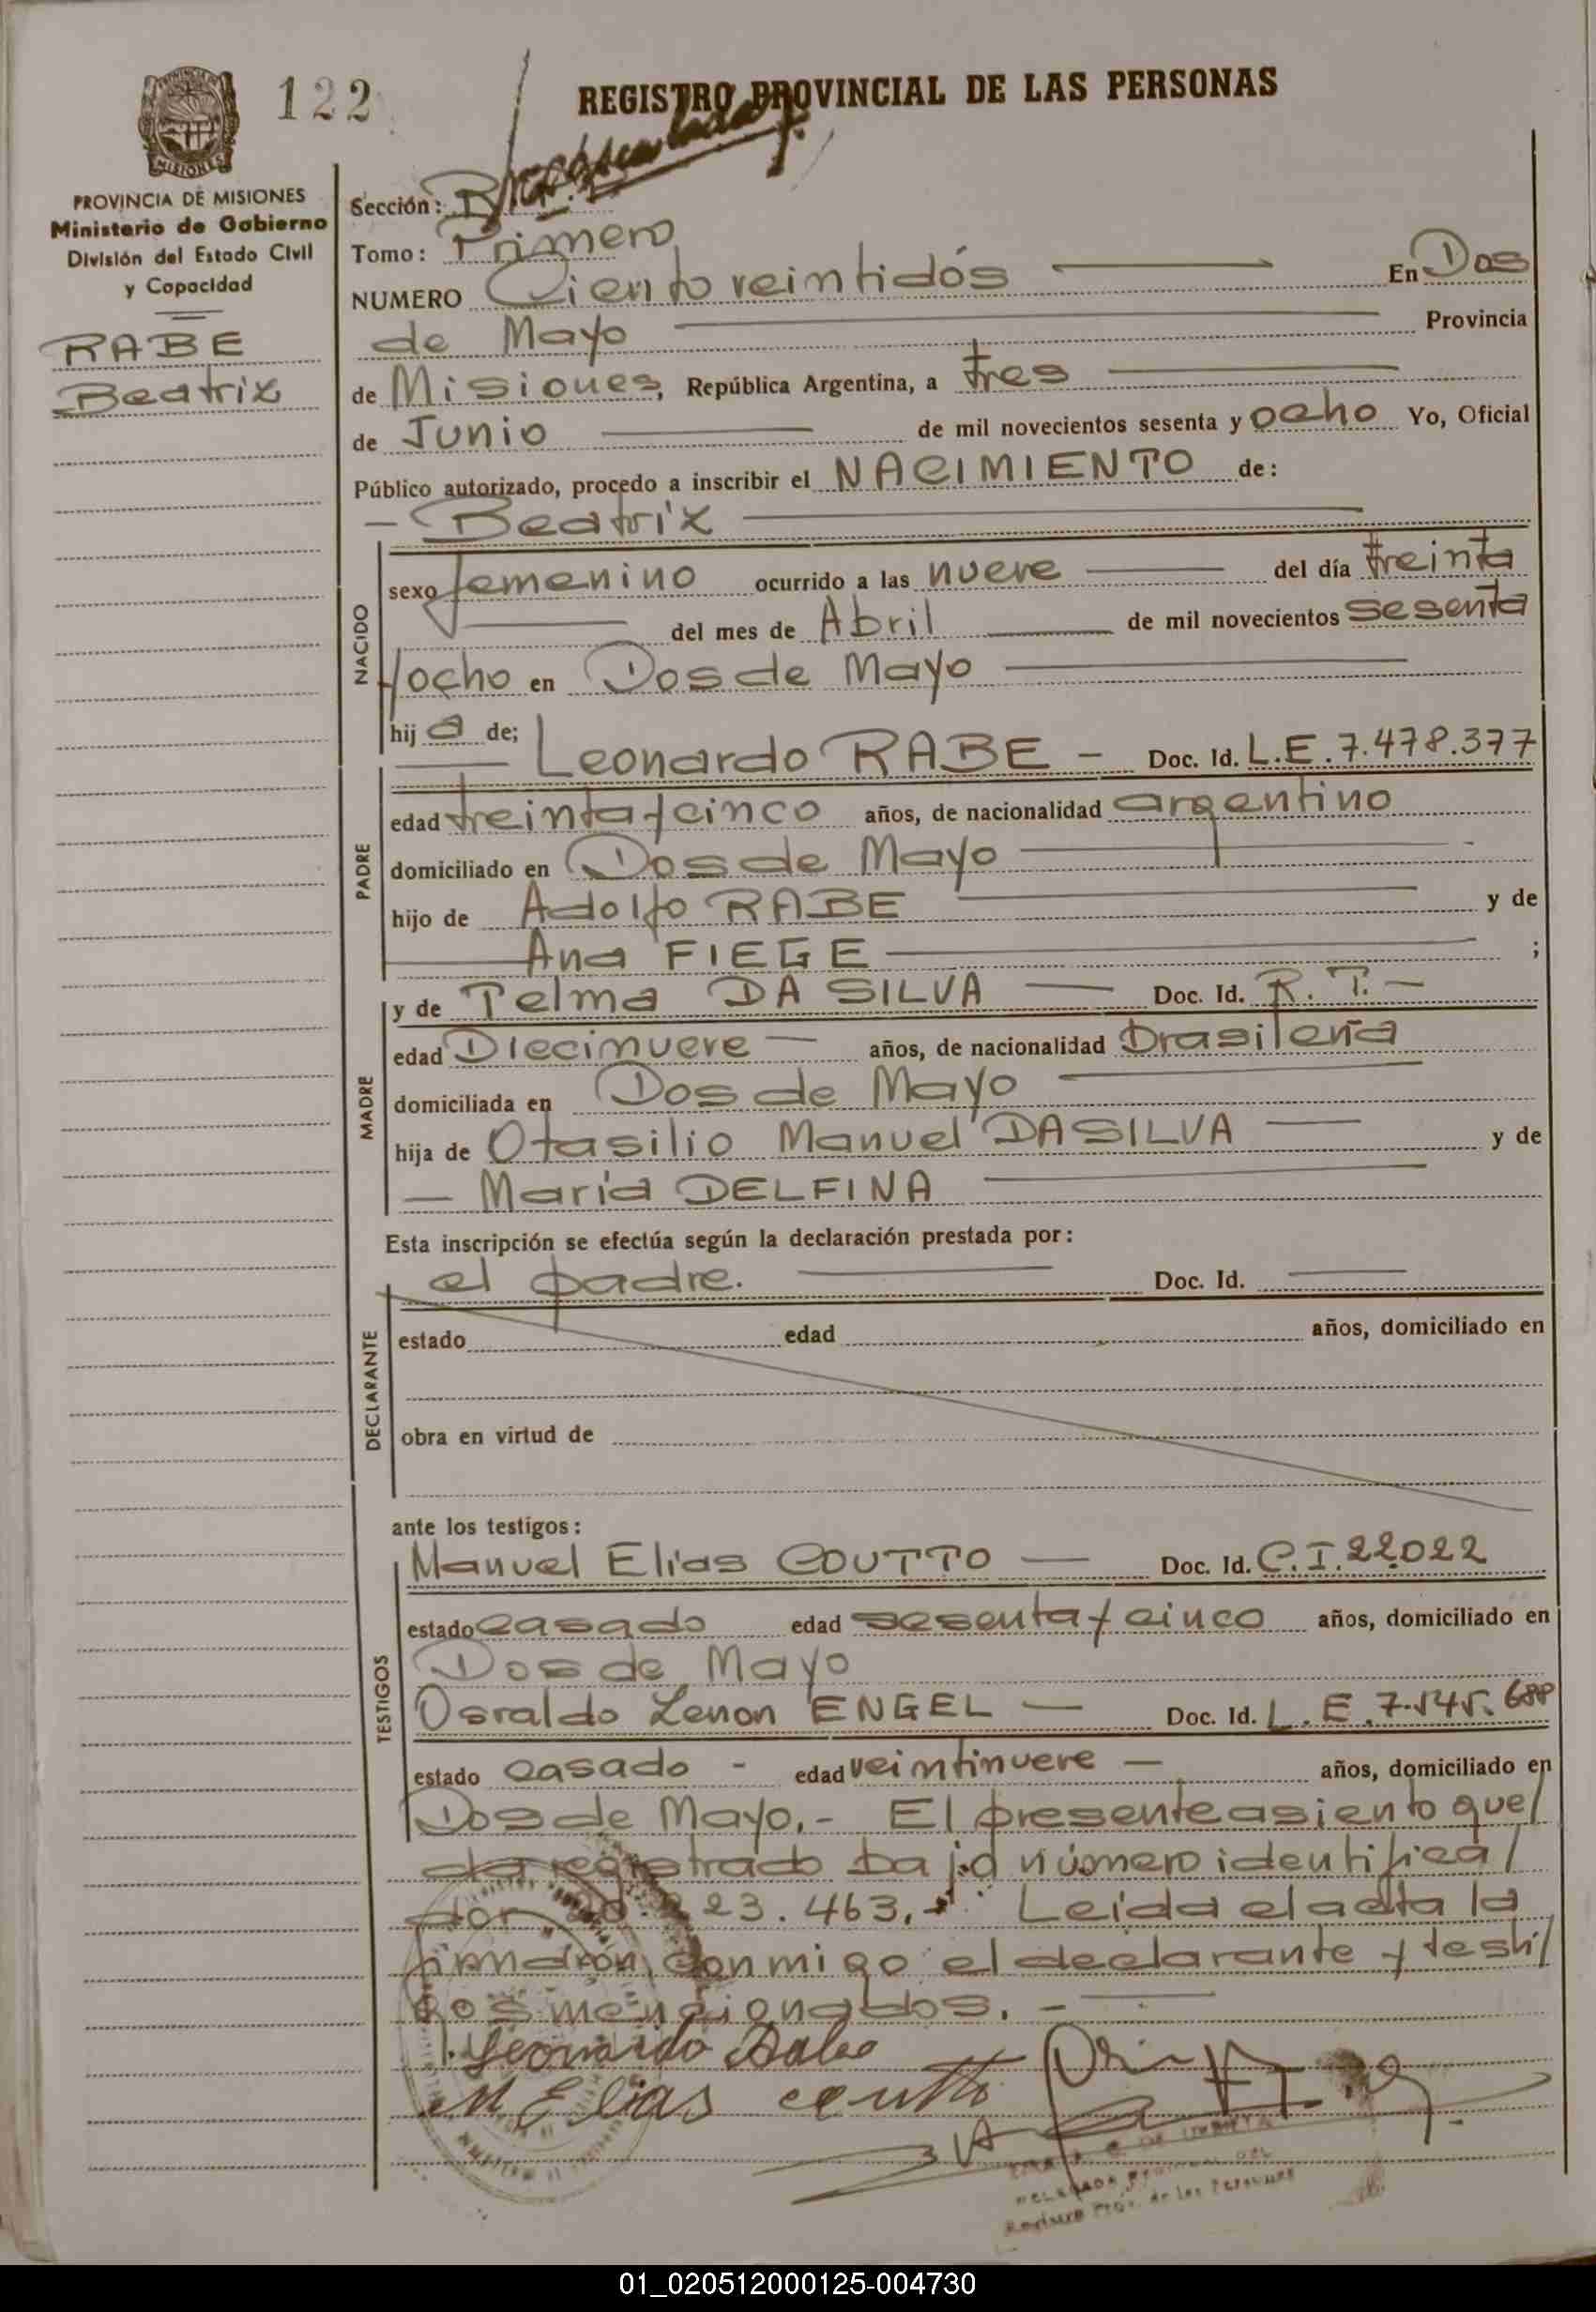 122
REGISTRO PROVINCIAL DE LAS PERSONAS
MISIONES
PROVINCIA DE MISIONES
Ministerio de Gobierno
División del Estado Civil
y Capacidad
RABE
Beatrix
Sección:
Tomo: Primero
NUMERO Ciento veintidós En Dos
de Mayo Provincia
de Misiones, República Argentina, a tres
de Junio de mil novecientos sesenta y ocho Yo, Oficial
Público autorizado, procedo a inscribir el NACIMIENTO de:
- Beatrix
NACIDO
sexo femenino ocurrido a las nueve del día treinta
del mes de Abril de mil novecientos sesenta
y ocho en Dos de Mayo
hij a de;
PADRE
Leonardo RABE - Doc. Id. L.E. 7.478.377
edad treinta y cinco años, de nacionalidad argentino
domiciliado en Dos de Mayo
hijo de Adolfo RABE y de
Ana FIEGE ;
MADRE
y de Telma DA SILVA Doc. Id. R. T. -
edad Diecinueve años, de nacionalidad brasileña
domiciliada en Dos de Mayo
hija de Otasilio Manuel DA SILVA y de
- María DELFINA
Esta inscripción se efectúa según la declaración prestada por:
DECLARANTE
el padre. Doc. Id.
estado edad años, domiciliado en
obra en virtud de
ante los testigos:
TESTIGOS
Manuel Elias COUTTO Doc. Id. C.I. 22.022
estado casado edad sesenta y cinco años, domiciliado en
Dos de Mayo
Osvaldo Zenon ENGEL - Doc. Id. L.E. 7.545.688
estado casado - edad veintinueve - años, domiciliado en
Dos de Mayo.- El presente asiento que/
da registrado bajo número identifica/
dor 223.463.- Leida el acta la
firmarón conmigo el declarante y testi/
gos mencionados. -
Leonardo Rabe
M Elias coutto
DELEGADA
Registro Prov. de las Personas
01_020512000125-004730